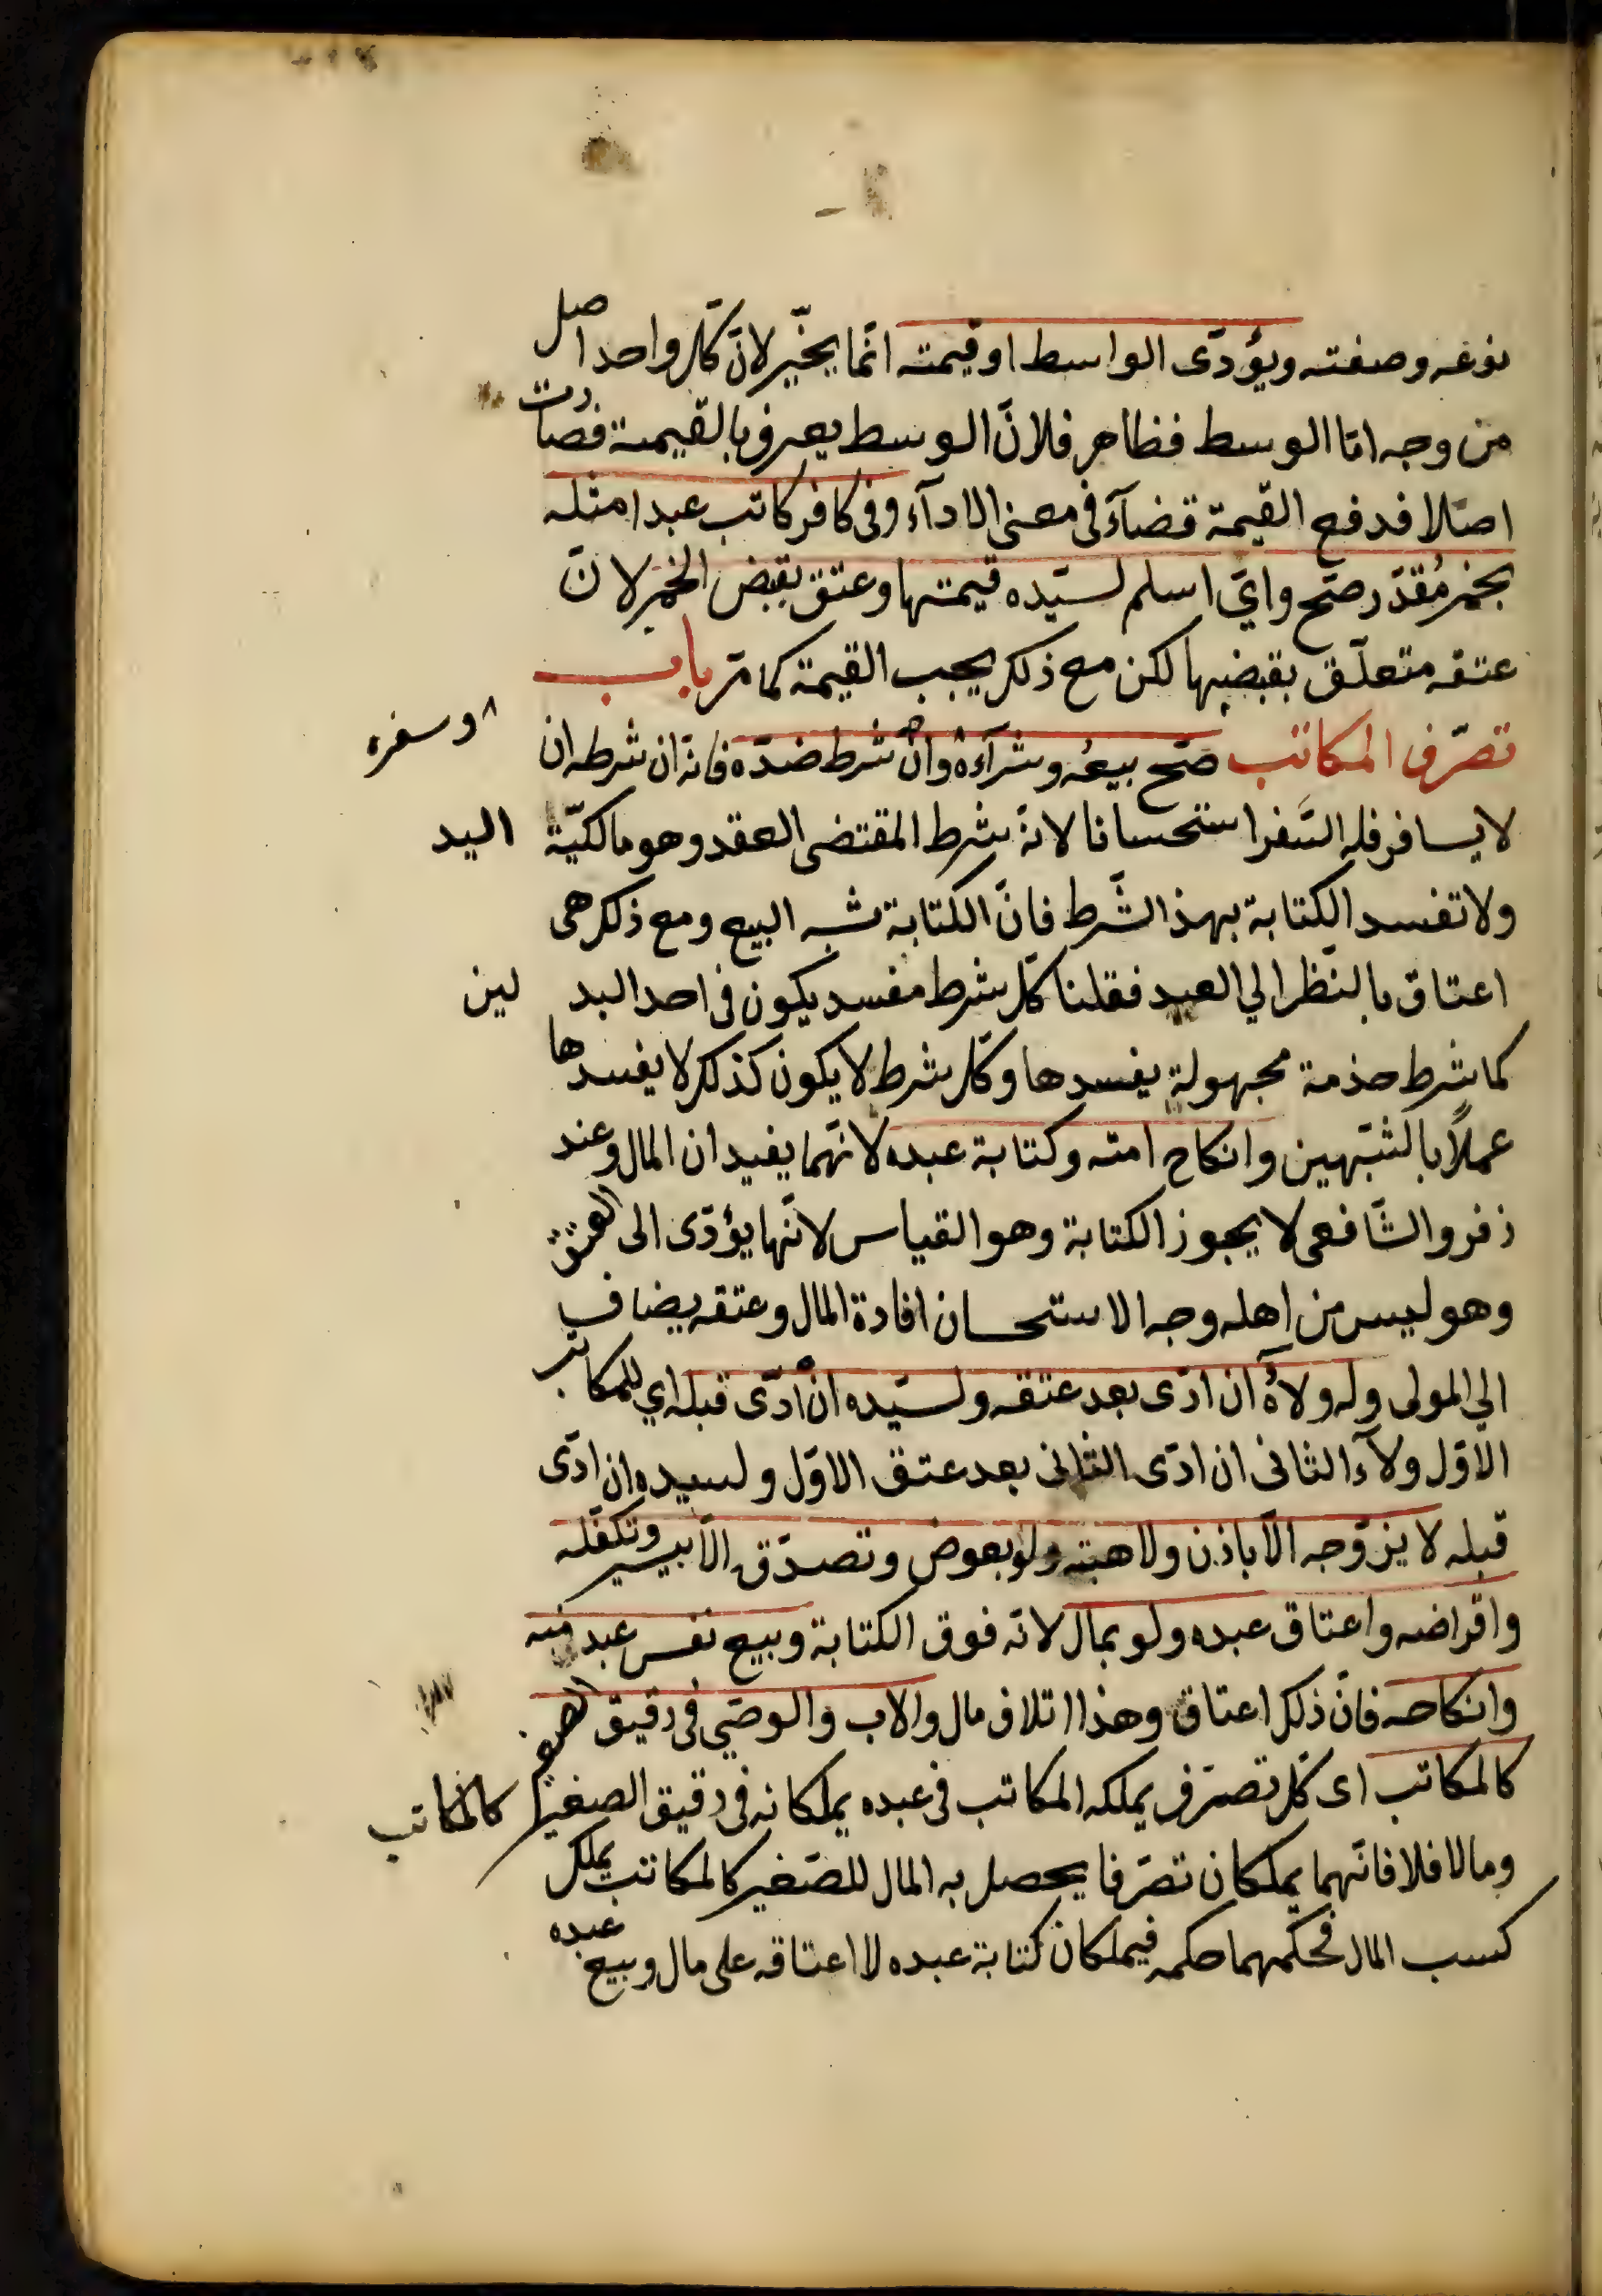 نوعه وصفته ويؤدّى الواسط او قيمته انّما يخيّر لانّ كلّ واحد اصل
من وجه امّا الوسط فظاهر فلانّ الوسط يعرف بالقيمة فصارت
اصلا فدفع القيمة قضآء فى معنى الادآء وفى كافر كاتب عبدا مثله
بخمر مُقدّر صحّ وايّ اسلم لسيّده قيمتها وعتق بقبض الخمر لانّ
عتقه متعلّق بقبضها لكن مع ذلك يجب القيمة كما مرّ باب
تصرّف المكاتب صحّ بيعُه وشرآءه وان شرط ضدّه فانّه ان شرط ان
وسفره
لا يسافر فله السّفر استحسانا لانّه شرط المقتضى العقد وهو مالكيّة اليد
ولا تفسد الكتابة بهذ الشّرط فانّ الكتابة شبه البيع ومع ذلك هى
اعتاق بالنّظر الي العبد فقلنا كلّ شرط مفسد يكون فى احد البدلين
كما شرط خذمة مجهولة يفسدها وكل شرط لا يكون كذلك لا يفسدها
عملاً بالشّبهين وانكاح امته وكتابة عبده لانّهما يفيدان المال وعند
زفر والشّافعى لا يجوز الكتابة وهو القياس لانّها يؤدّى الى العتق
وهو ليس من اهله وجه الاستحسان افادة المال وعتقه يضاف
الي المولى وله ولاؤُه ان ادّى بعد عتقه ولسيّده ان ادّى قبله اي للمكاتب
الاوّل ولآء الثانى ان ادّى الثانى بعد عتق الاوّل ولسيده ان ادّى
قبله لا يزوّجه الّا باذن ولا هبته ولو بعوض وتصدّق الّا بيسير وتكفّله
واقراضه واعتاق عبده ولو بمال لانّه فوق الكتابة وبيع نفس عبد منه
وانكاحه فانّ ذلك اعتاق وهذا اتلاف مال والاب والوصّي فى رقيق الصغير
كالمكاتب اى كلّ تصرّف يملكه المكاتب فى عبده يملكانه فى رقيق الصغير كالمكاتب
وما لا فلا فانّهما يملكان تصرّفا يحصل به المال للصّغير كالمكاتب يملك
كسب المال فحكمهما حكمه فيملكان كتابة عبده لا اعتاقه على مال وبيع عبده